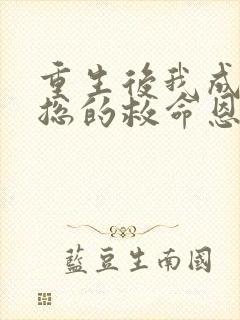 重生後我成
總的救命恩
藍豆生南國